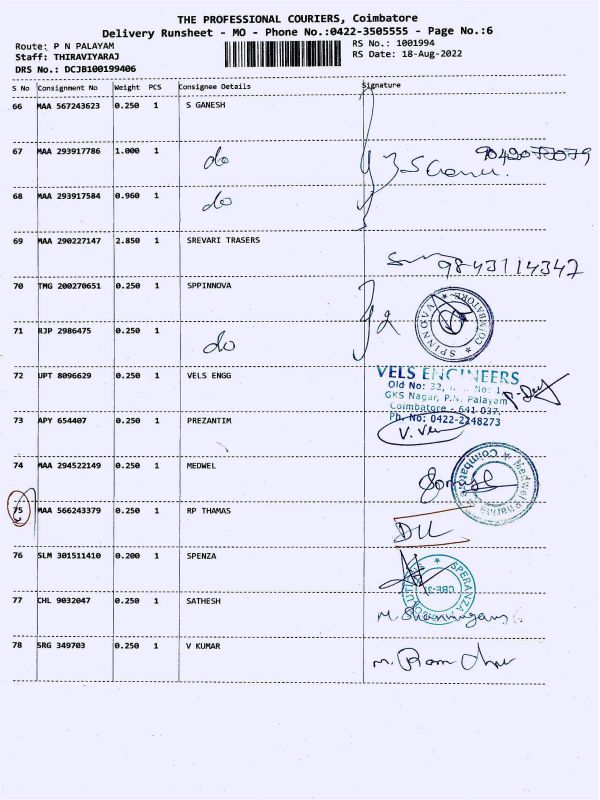 THE PROFESSIONAL COURIERS, Coimbatore
Delivery Runsheet - MO - Phone No.:0422-3505555 - Page No.:6
Route: P N PALAYAM
RS No.: 1001994
Staff: THIRAVIYARAJ
RS Date: 18-Aug-2022
DRS No.: DCJB100199406
S No Consignment No Weight PCS Consignee Details Signature
66 MAA 567243623 0.250 1 S GANESH
67 MAA 293917786 1.000 1 do
68 MAA 293917584 0.960 1 do
69 MAA 290227147 2.850 1 SREVARI TRASERS 9843114347
70 TMG 200270651 0.250 1 SPPINNOVA
COIMBATORE
71 RJP 2986475 0.250 1 do
72 UPT 8096629 0.250 1 VELS ENGG
VELS ENGINEERS
Old No: 32, No: 1,
GKS Nagar, P.N. Palayam
Coimbatore - 641 037.
Ph. No: 0422-2248273
73 APY 654407 0.250 1 PREZANTIM
74 MAA 294522149 0.250 1 MEDWEL
Coimbatore
75 MAA 566243379 0.250 1 RP THAMAS
76 SLM 301511410 0.200 1 SPENZA
SPERANZA
77 CHL 9032047 0.250 1 SATHESH
78 SRG 349703 0.250 1 V KUMAR